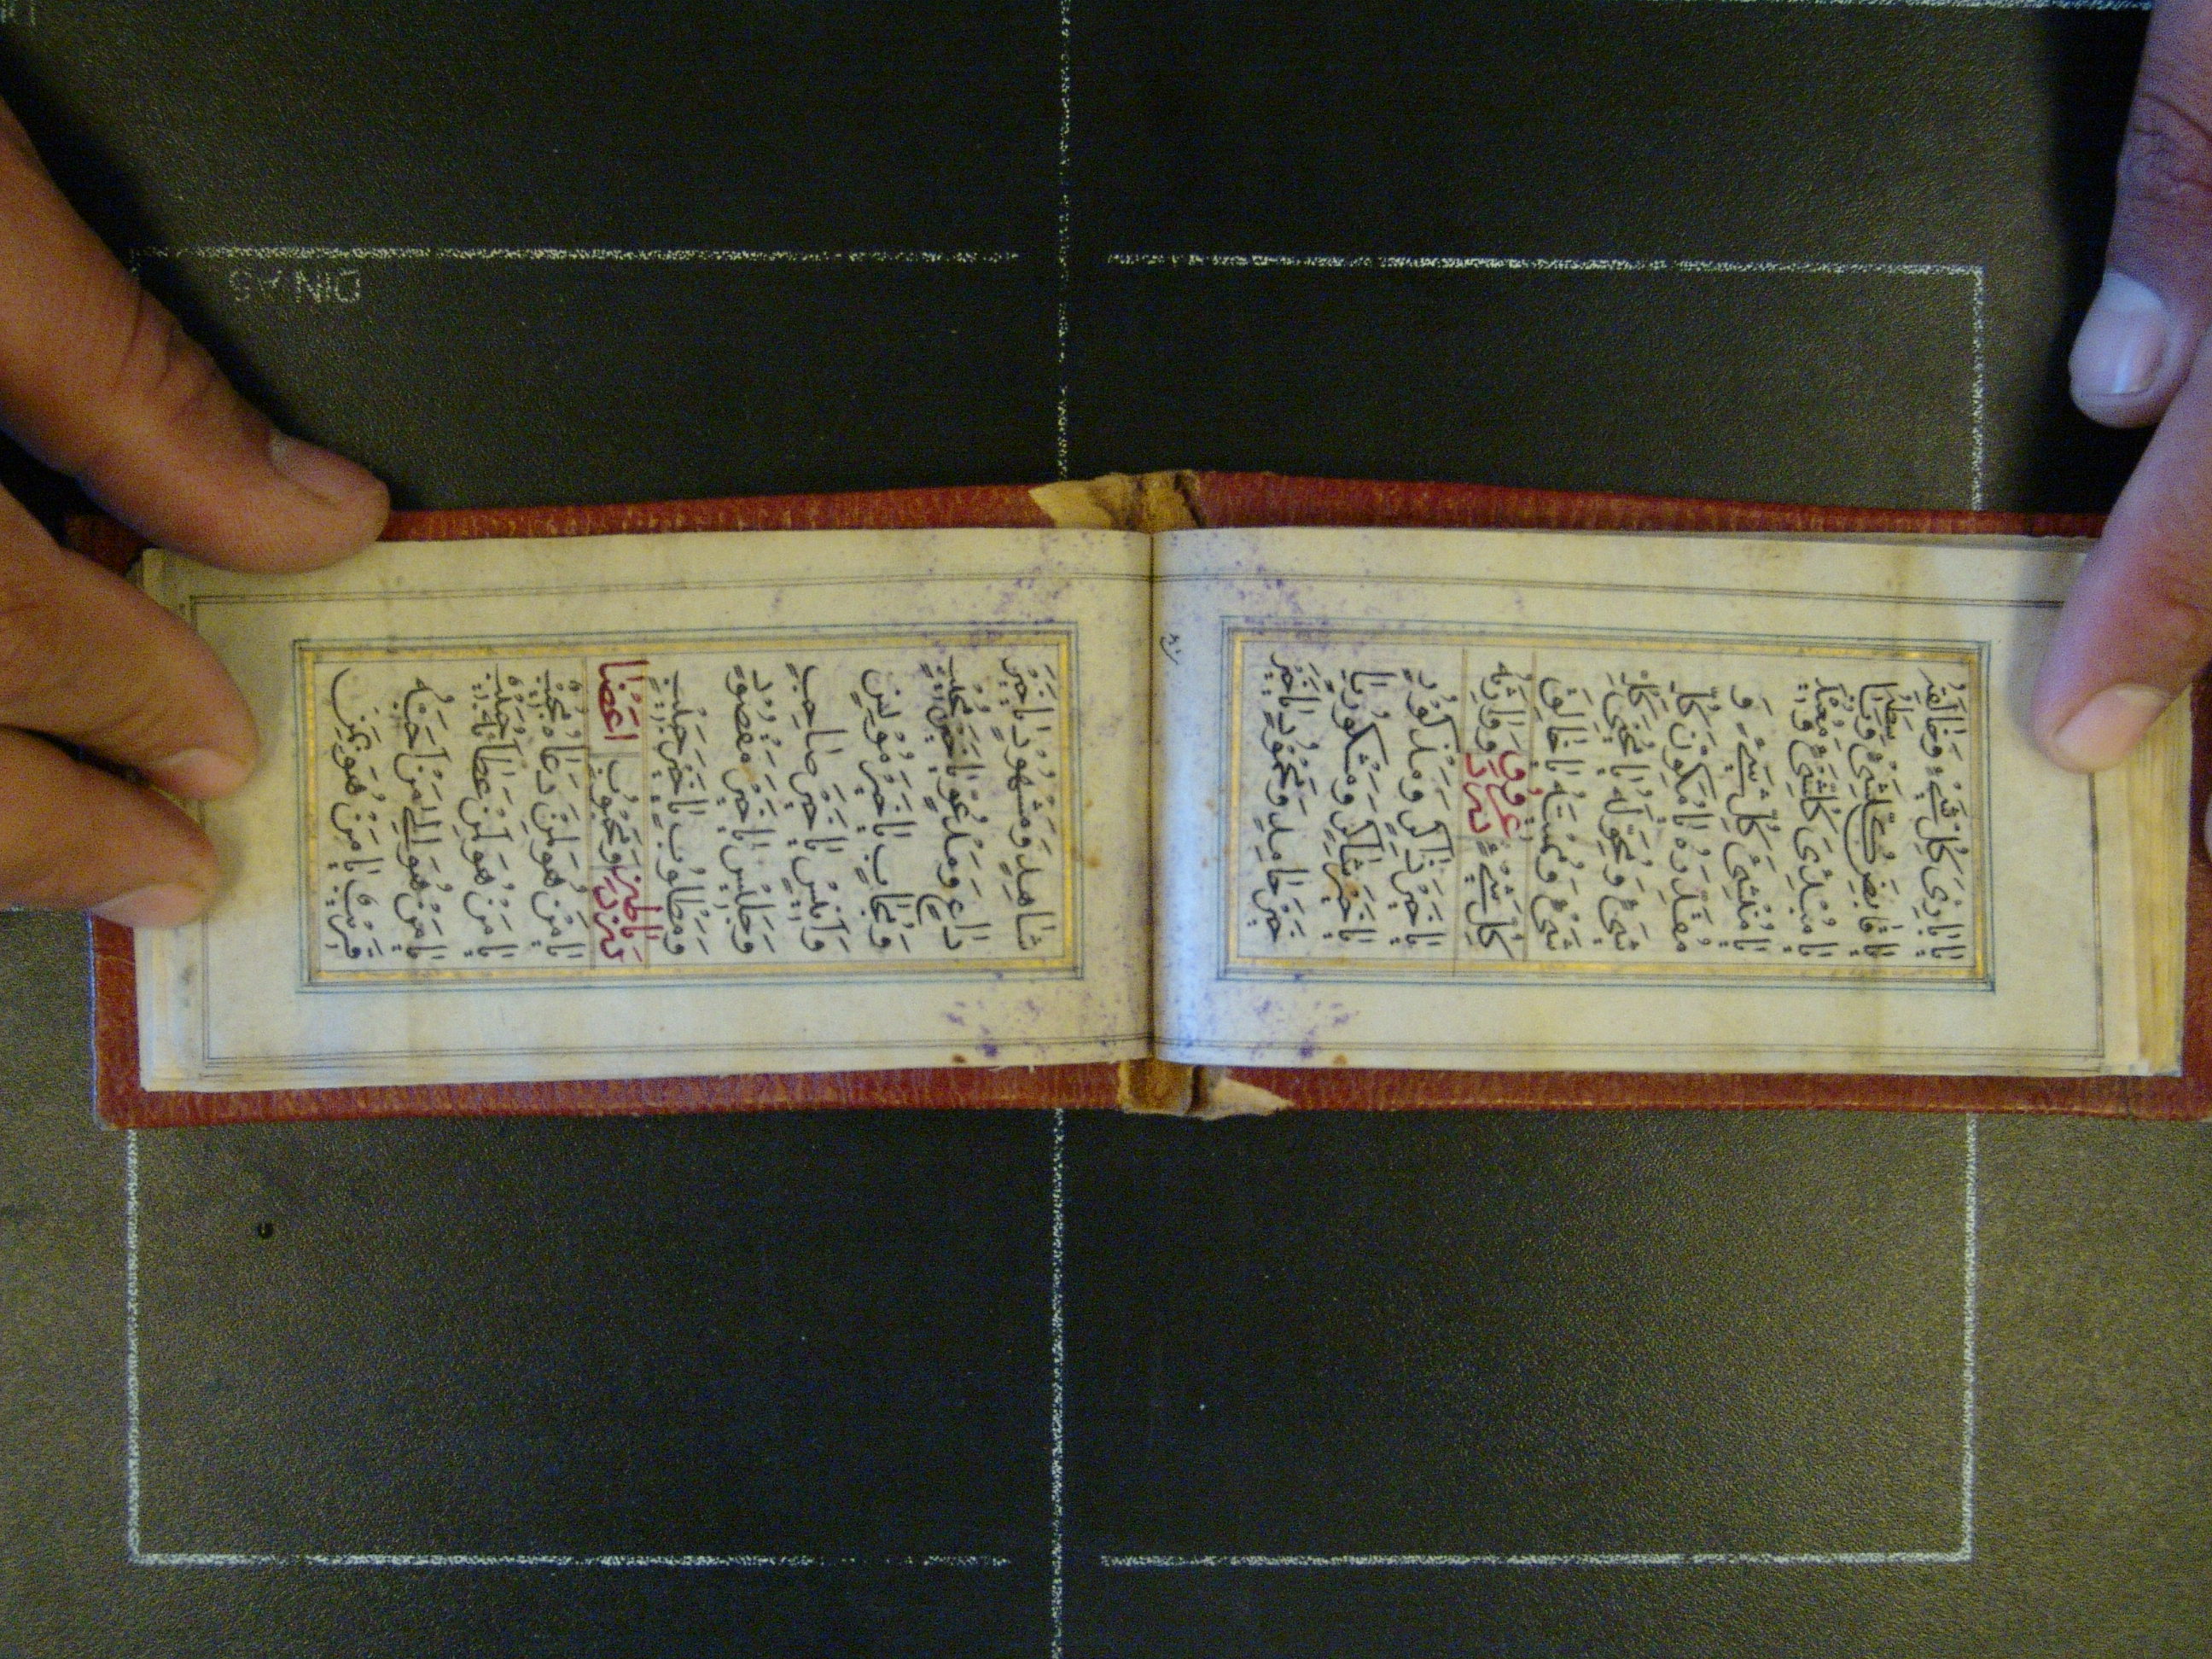 يَا بَارِئَ كُلِّ شَيْءٍ وَخَالِقَهُ
يَا قَابِضَ كُلِّ شَيْءٍ وَبَاسِطَهُ
يَا مُبْدِئَ كُلِّ شَيْءٍ وَمُعِيدَهُ
يَا مُنْشِئَ كُلِّ شَيْءٍ وَ
مُقَدِّرَهُ يَا مُكَوِّنَ كُلِّ
شَيْءٍ وَمُحَوِّلَهُ يَا مُحْيِيَ كُلِّ
شَيْءٍ وَمُمِيتَهُ يَا خَالِقَ
كُلِّ شَيْءٍ وَوَارِثَهُ
عروق
يَا خَيْرَ ذَاكِرٍ وَمَذْكُورٍ
يَا خَيْرَ شَاكِرٍ وَمَشْكُورٍ يَا
خَيْرَ حَامِدٍ وَمَحْمُودٍ يَا خَيْرَ
شَاهِدٍ وَمَشْهُودٍ يَا خَيْرَ
دَاعٍ وَمَدْعُوٍّ يَا خَيْرَ مُجِيبٍ
وَمُجَابٍ يَا خَيْرَ مُونِسٍ
وَأَنِيسٍ يَا خَيْرَ صَاحِبٍ
وَجَلِيسٍ يَا خَيْرَ مَقْصُودٍ
وَمَطْلُوبٍ يَا خَيْرَ حَبِيبٍ
وَمَحْبُوبٍ
يَا مَنْ هُوَ لِمَنْ دَعَاهُ مُجِيبٌ
يَا مَنْ هُوَ لِمَنْ أَطَاعَهُ حَبِيبٌ
يَا مَنْ هُوَ إِلَى مَنْ أَحَبَّهُ
قَرِيبٌ يَا مَنْ هُوَ بِمَنِ